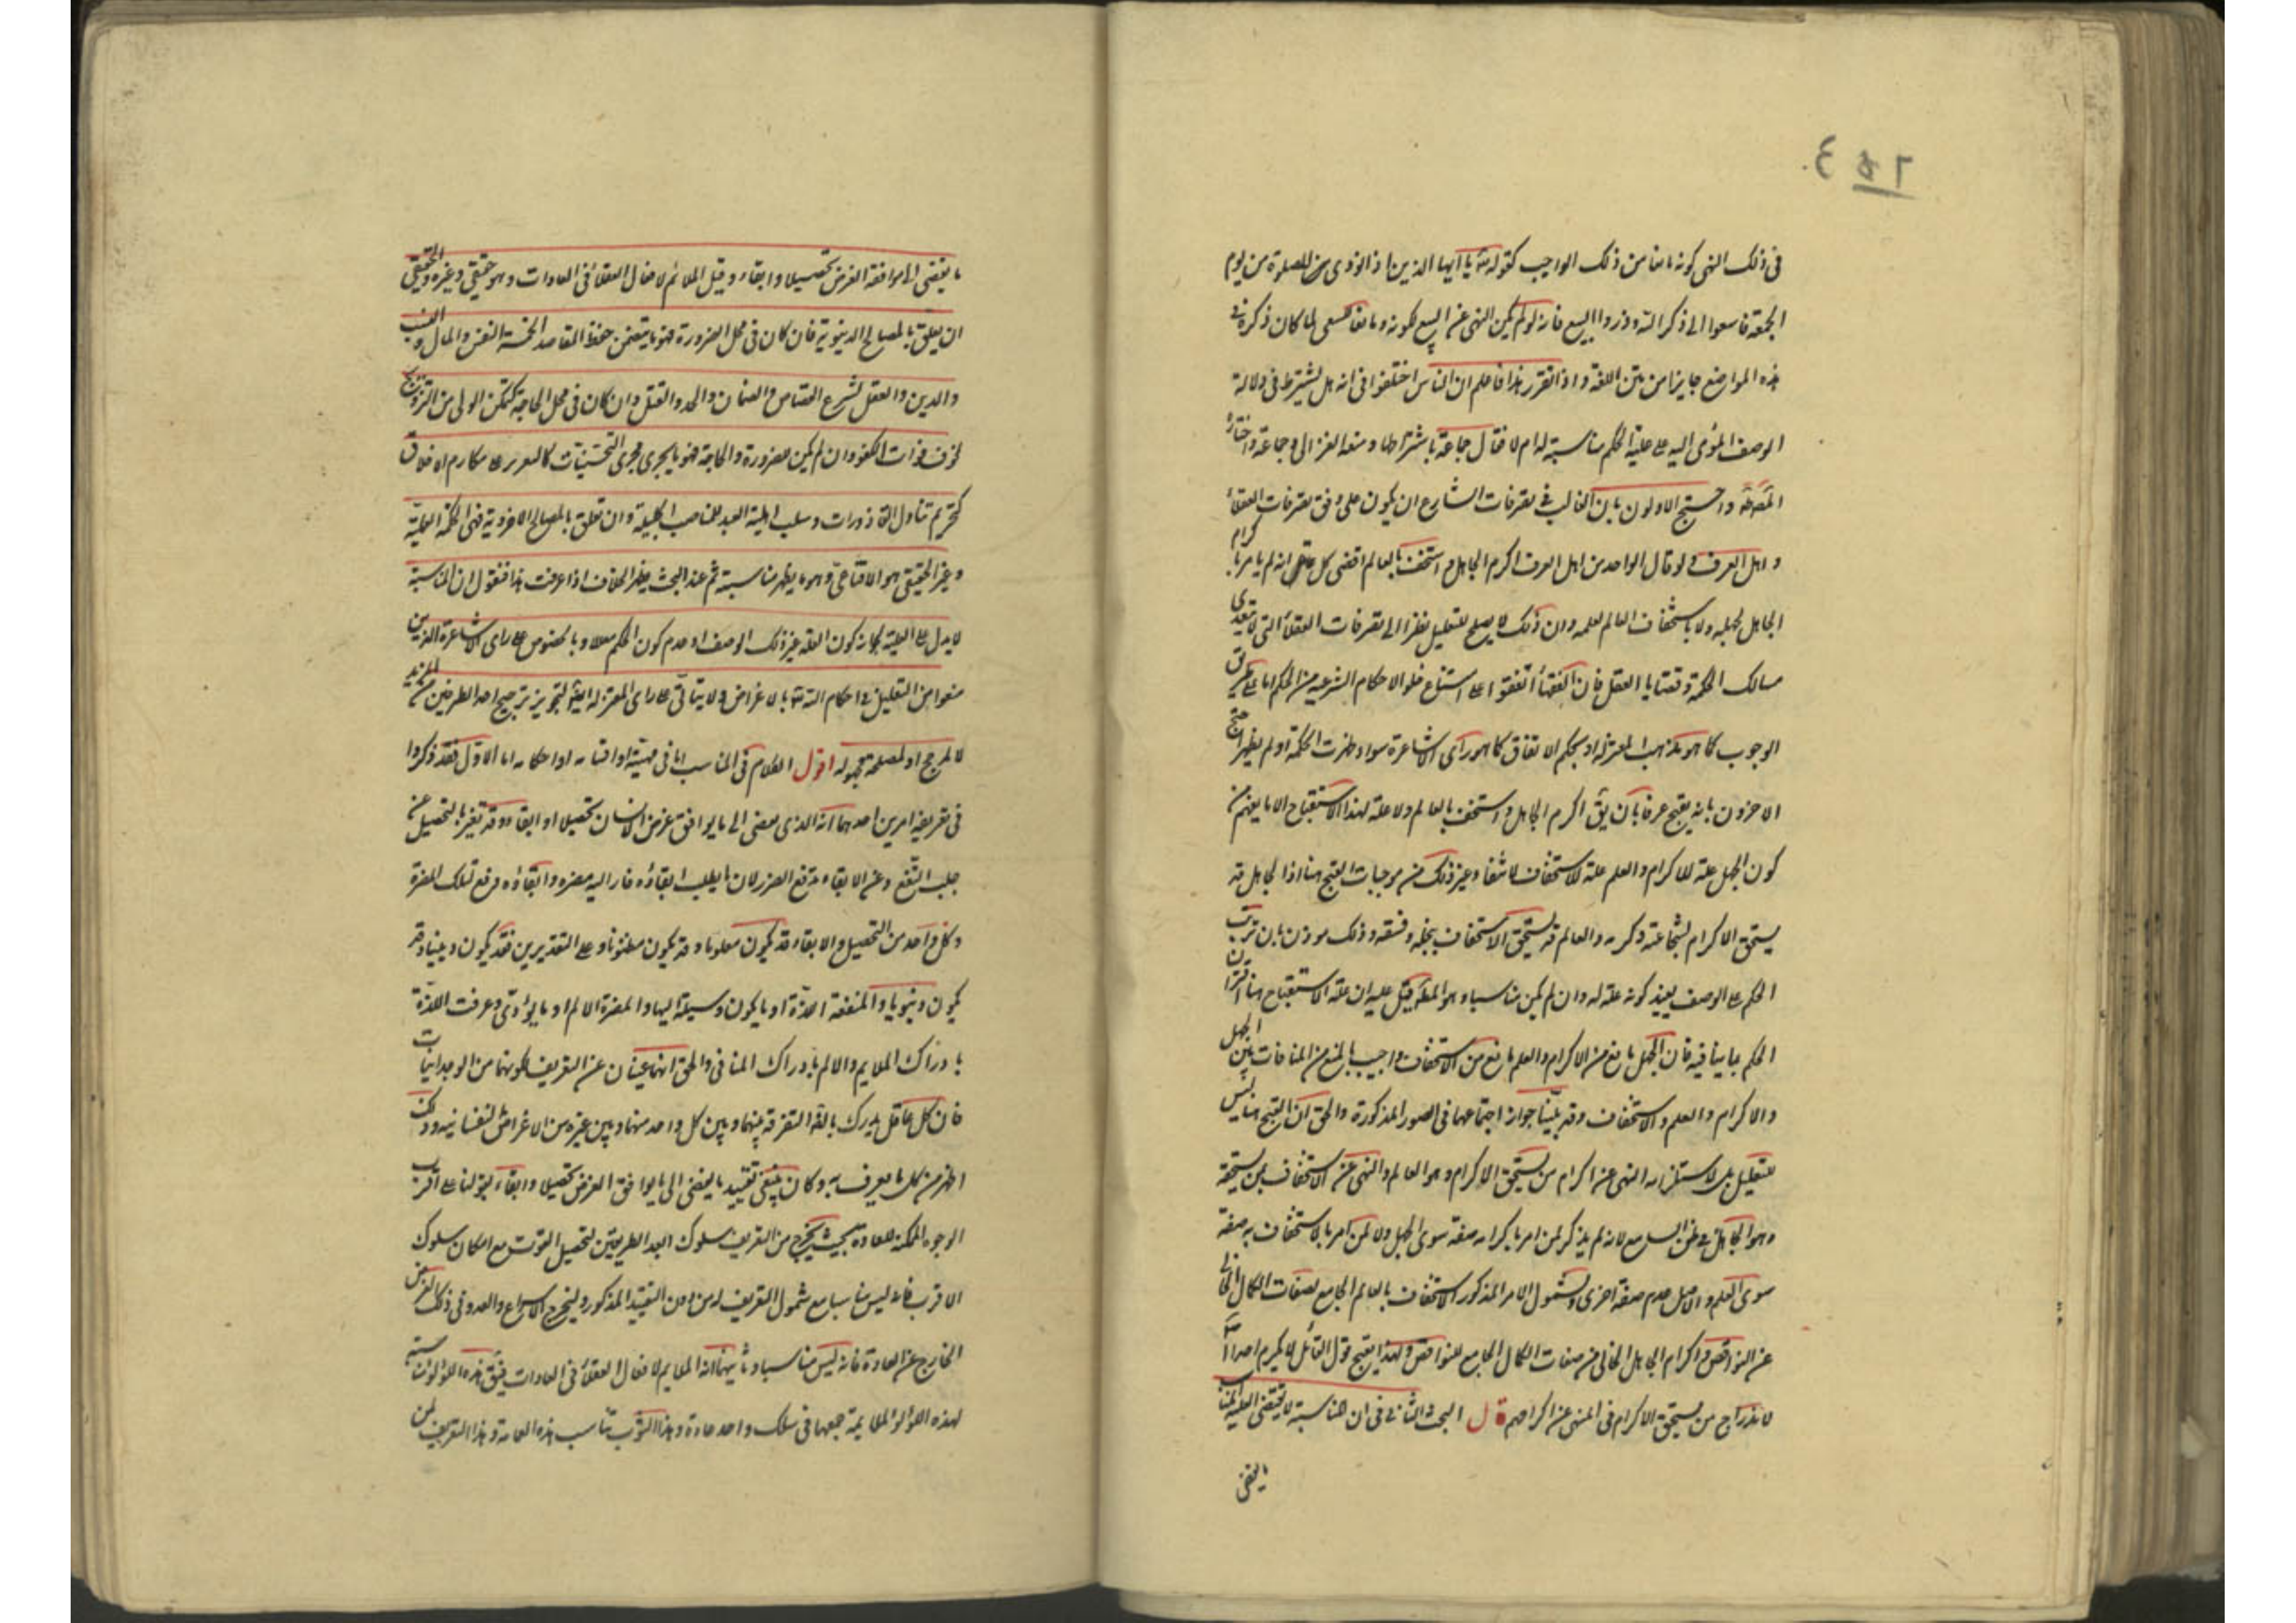 في ذلك النهي كونه مانعا من ذلك الواجب كقوله تعالى يا ايها الذين اذا نودى من الصلوة من يوم
الجمعة فاسعوا الى ذكر الله وذروا البيع فانه لو لم يكن النهى عن البيع لكونه مانعا للسعى لما كان ذكره في
هذه المواضع جايزا من متن اللغة واذا تقرر هذا فاعلم ان الناس اختلفوا فى انه هل يشترط فى دلالة
الوصف المؤمى اليه على علية الحكم مناسبته له ام لا فقال جماعة باشتراطها ومنعه الغزالى وجماعة واختاره
المص واحتج الاولون بان الغالب في تصرفات الشارع ان يكون على وفق تصرفات العقلاء
واهل العرف ولو قال الواحد من اهل العرف اكرم الجاهل واستخف بالعالم اقضى كل عاقل انه لم يامر باكرام
الجاهل لجهله ولا باستخفاف العالم لعلمه وان ذلك لا يصلح للتعليل نظرا الى تصرفات العقلاء التى لا تتعدى
مسالك الحكمة وقضايا العقل فان الفقهاء اتفقوا على امتناع خلو الاحكام الشرعيه من الحكم اما على طريق
الوجوب كما هو مذهب المعتزله او بحكم الاتفاق كما هو راى الاشاعرة سواء ظهرت الحكمة او لم يظهر احتج
الاخرون بانه يقبح عرفا بان يق اكرم الجاهل واستخف بالعالم ولا علة لهذا الاستقباح الا ما يفهم من
كون الجهل علة للاكرام والعلم علة للاستخفاف لانتفاء غير ذلك من موجبات القبح هنا اذ الجاهل قد
يستحق الاكرام لشجاعته وكرمه والعالم قد يستحق الاستخفاف ببخله وفسقه وذلك موذن بان ترتيب
الحكم على الوصف يفيد كونه علة له وان لم يكن مناسبا وهو المطلوب قيل عليه ان علة الاستقباح هنا اقتران
الحكم بما ينافيه فان الجهل مانع من الاكرام والعلم مانع من الاستخفاف واجيب بالمنع من المنافات بين الجهل
والاكرام والعلم والاستخفاف وقد بينا جواز اجتماعهما فى الصور المذكورة والحق ان القبح هنا ليس
للتعليل بل لاستلزامه النهى عن اكرام من يستحق الاكرام وهو العالم والنهى عن الاستخفاف بمن يستحقه
وهو الجاهل في ظن السامع لانه لم يذكر لمن امر باكرامه صفة سوى الجهل ولا لمن امر بالاستخفاف به صفة
سوى العلم والاصل عدم صفة اخرى ولشمول الامر المذكور الاستخفاف بالعالم الجامع لصفات الكمال الخالى
عن النواقص واكرام الجاهل الخالى من صفات الكمال الجامع للنواقص ولهذا يقبح قول القائل لا تكرم احدا
لاندراج من يستحق الاكرام فى المنهى عن اكرامهم قال البحث الثانى فى ان المناسبة لا تقتضى العلية المناسب
ما يفضى
ما يفضى الى موافقة الغرض تحصيلا وابقاء وقيل الملائم لافعال العقلاء فى العادات وهو حقيقى وغيره والحقيقى
ان يعلق بالمصالح الدنيوية فان كان فى محل الضرورة فهو ما يتضمن حفظ المقاصد الخمسة النفس والمال والنسب
والدين والعقل لشرع القصاص والضمان والحد والقتل وان كان فى محل الحاجة كتمكن الولى من التزويج
لخوف فوات الكفو وان لم يكن للضرورة والحاجة فهو ما يجرى مجرى التحسينات كالتقرير على مكارم الاخلاق
كتحريم تناول القاذورات وسلب اهلية العبد للمناصب الجليلة وان تعلق بالمصالح الاخروية فهى الحكمة العملية
وغير الحقيقى هو الاقناعى وهو ما يظهر مناسبته ثم عند البحث يظهر الخلاف اذا عرفت هذا فنقول ان المناسبة
لا يدل على العلية لجواز كون العلة غير ذلك الوصف او عدم كون الحكم معللا وبالخصوص على راى الاشاعرة الذين
منعوا من التعليل في احكام الله تعالى بالاغراض ولا يتأتى على راى المعتزله ايضا لتجويز ترجيح احد الطرفين من المريد
لا لمرجح او لمصلحة مجهوله اقول الكلام فى المناسب اما فى مهيته او اقسامه او احكامه اما الاول فقد ذكروا
فى تعريفه امرين احدهما انه الذى يفضى الى ما يوافق غرض الانسان تحصيلا او ابقاء وقد تعبر بالتحصيل عن
جلب النفع وعن الابقاء بدفع الضرر لان ما يطلب ابقاؤه فازاليه مضره وابقاؤه دفع تلك المضرة
وكل واحد من التحصيل والابقاء قد يكون معلوما وقد يكون مظنونا وعلى التقديرين فقد يكون دينيا وقد
يكون دنيويا والمنفعة اللذة او ما يكون وسيلة اليها والمضرة الالم او ما يؤدى وعرفت اللذة
بادراك الملايم والالم بادراك المنافى والحق انهما غنيان عن التعريف لكونهما من الوجدانيات
فان كل عاقل يدرك بالقه التفرقة بينهما وبين كل واحد منهما وبين غيره من الاغراض النفسانيه وذلك
اظهر من كل ما يعرف به وكان ينبغى تقييد ما يفضى الى ما يوافق الغرض تحصيلا وابقاء بقولنا على اقرب
الوجوه الممكنة للعادة بحيث يخرج من التعريف سلوك ابعد الطريقين لتحصيل القوت مع امكان سلوك
الاقرب فانه ليس مناسبا مع شمول التعريف له من دون التقييد المذكور وليخرج الاسراع والعدو فى ذلك الغرض
الخارج عن العادة فانه ليس مناسبا وثانيهما انه الملايم لافعال العقلاء فى العادات فيق هذه اللؤلؤة مناسبة
لهذه اللؤلؤ الملايمة جمعها فى سلك واحد عادة وهذا الثوب يناسب هذه العمامة وهذا التعريف لمن